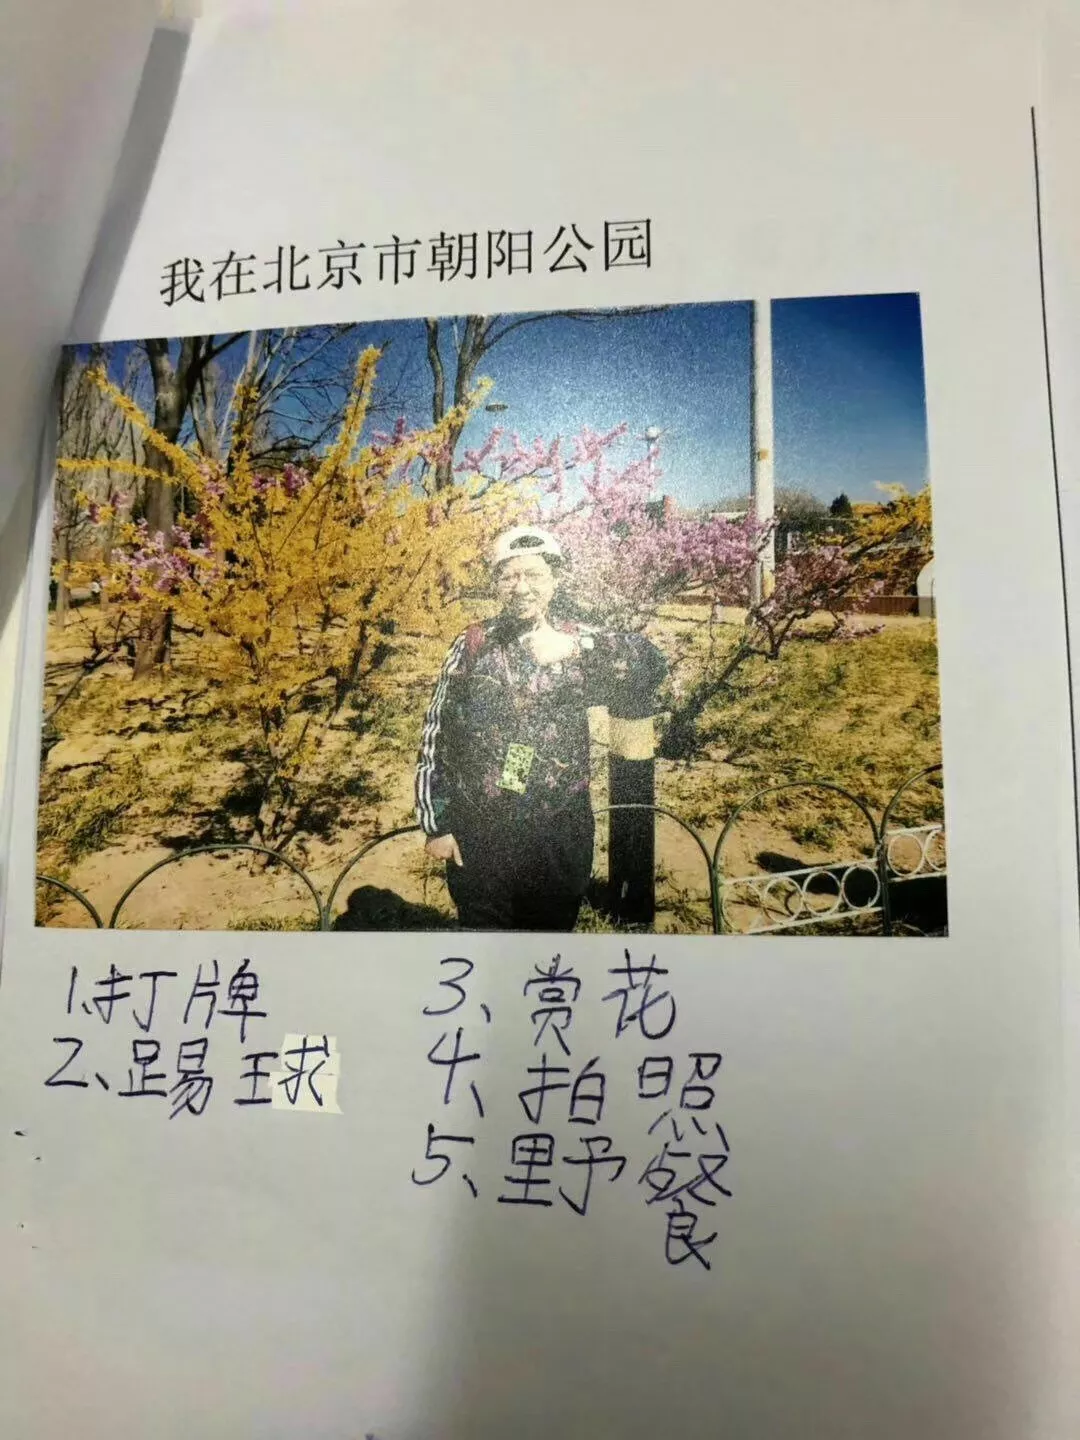 我在北京市朝阳公园
1、打牌
2、踢球
3、赏花
4、拍照
5、野餐